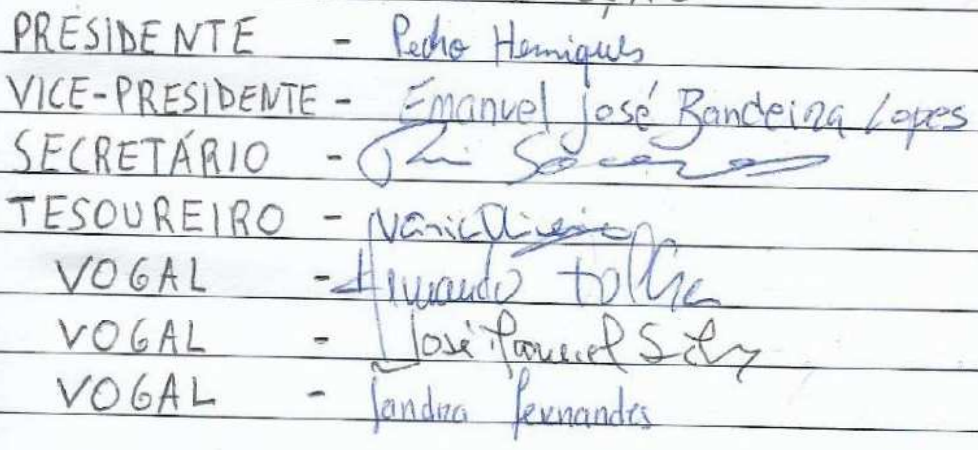 PRESIDENTE - Pedro Henriques
VICE-PRESIDENTE - Emanuel José Bandeira Lopes
SECRETÁRIO -
TESOUREIRO -
VOGAL - Armando
VOGAL - José Manuel Silva
VOGAL - Sandra Fernandes